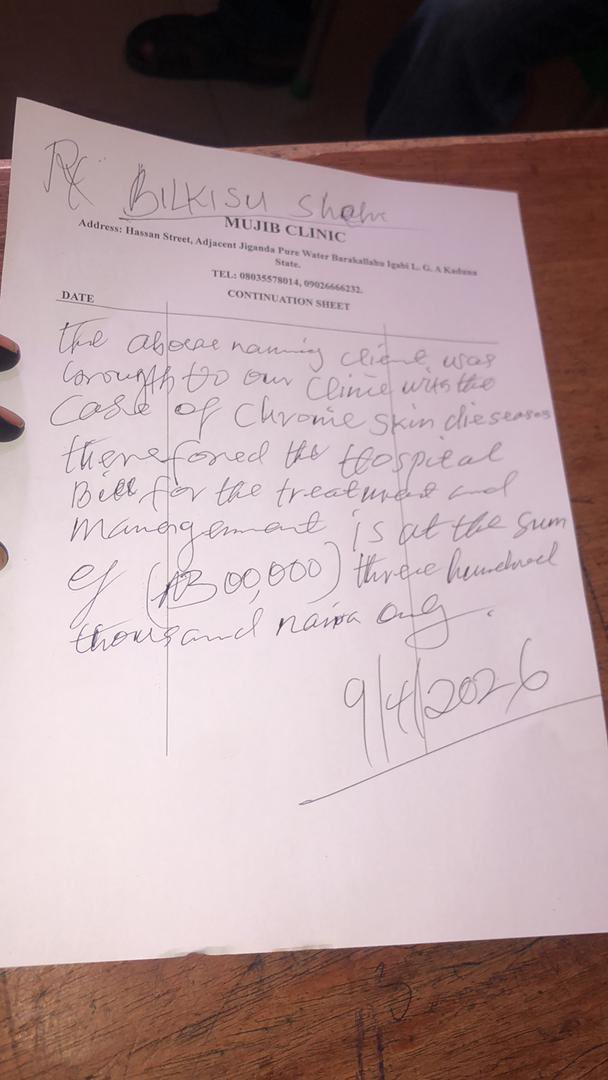 Rx BILKISU Shehu
MUJIB CLINIC
Address: Hassan Street, Adjacent Jiganda Pure Water Barakallahu Igabi L. G. A Kaduna
State.
TEL: 08035578014, 09026666232.
DATE
CONTINUATION SHEET
The above naming client was
brought to our clinic with the
case of chronic skin dieseases
therefored the Hospital
Bill for the treatment and
management is at the sum
of (₦300,000) three hundred
thousand naira only.
9/4/2026